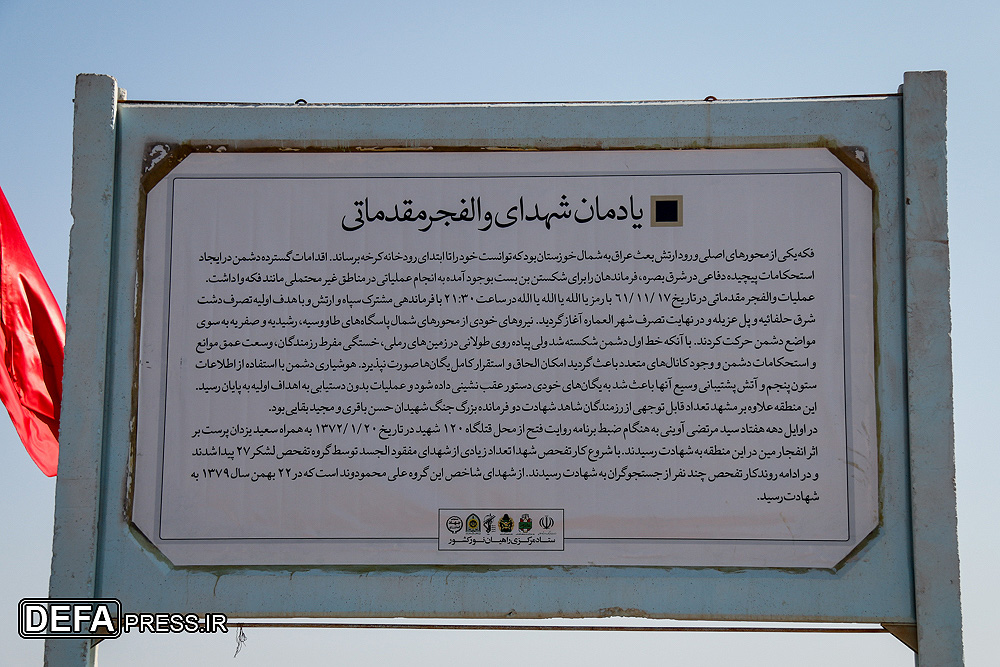 یادمان شهدای والفجر مقدماتی
فکه یکی از محورهای اصلی ورود ارتش بعث عراق به شمال خوزستان بود که توانست خود را تا ابتدای رودخانه کرخه برساند. اقدامات گسترده دشمن در ایجاد
استحکامات پیچیده دفاعی در شرق بصره، فرماندهان را برای شکستن بن بست بوجود آمده به انجام عملیاتی در مناطق غیر محتملی مانند فکه واداشت.
عملیات والفجر مقدماتی در تاریخ ۶۱/۱۱/۱۷ با رمز یا الله یا الله یا الله در ساعت ۲۱:۳۰ با فرماندهی مشترک سپاه و ارتش و با هدف اولیه تصرف دشت
شرق حلفائیه و پل غزیله و در نهایت تصرف شهر العماره آغاز گردید. نیروهای خودی از محورهای شمال پاسگاه‌های طاووسیه، رشیدیه و صفریه به سوی
مواضع دشمن حرکت کردند. با آنکه خط اول دشمن شکسته شد ولی پیاده روی طولانی در زمین‌های رملی، خستگی مفرط رزمندگان، وسعت عمق موانع
و استحکامات دشمن و وجود کانال‌های متعدد باعث گردید امکان الحاق و استقرار کامل یگان‌ها صورت نپذیرد. هوشیاری دشمن با استفاده از اطلاعات
ستون پنجم و آتش پشتیبانی وسیع آنها باعث شد به یگان‌های خودی دستور عقب نشینی داده شود و عملیات بدون دستیابی به اهداف اولیه به پایان رسید.
این منطقه علاوه بر مشهد تعداد قابل توجهی از رزمندگان شاهد شهادت دو فرمانده بزرگ جنگ شهیدان حسن باقری و مجید بقایی بود.
در اوایل دهه هفتاد سید مرتضی آوینی به هنگام ضبط برنامه روایت فتح از محل قتلگاه ۱۲۰ شهید در تاریخ ۱۳۷۲/۱/۲۰ به همراه سعید یزدان پرست بر
اثر انفجار مین در این منطقه به شهادت رسیدند. با شروع کار تفحص شهدا تعداد زیادی از شهدای مفقود الجسد توسط گروه تفحص لشکر ۲۷ پیدا شدند
و در ادامه روند کار تفحص چند نفر از جستجوگران به شهادت رسیدند. از شهدای شاخص این گروه علی محمودوند است که در ۲۲ بهمن سال ۱۳۷۹ به
شهادت رسید.
ستاد مرکزی راهیان نور کشور
DEFAPRESS.IR